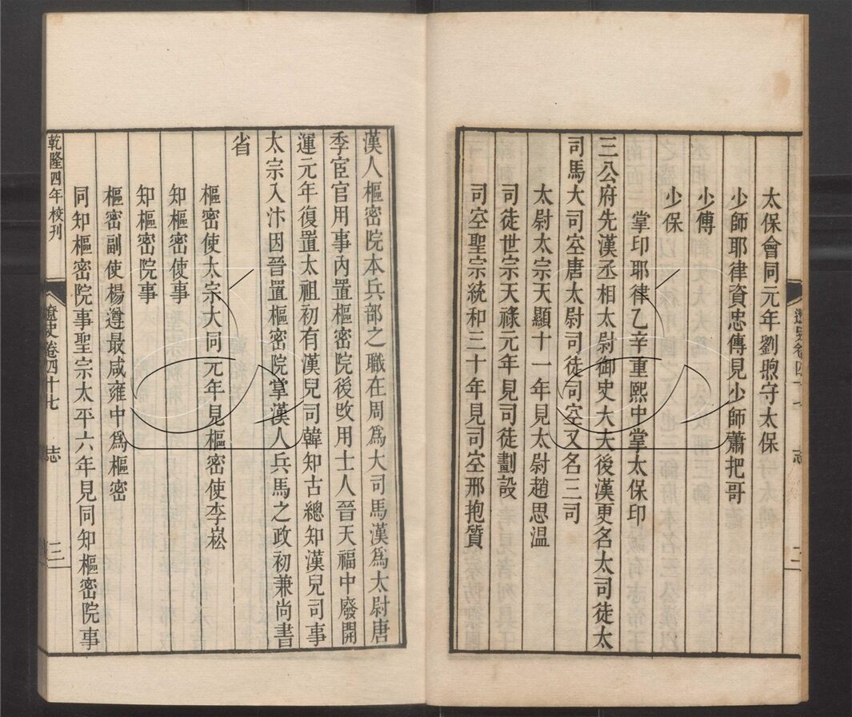 遼史卷四十七 志 二
太保會同元年劉煦守太保
少師耶律資忠傳見少師蕭把哥
少傅
少保
掌印耶律乙辛重熙中掌太保印
三公府先漢丞相太尉御史大夫後漢更名太司徒太
司馬大司空唐太尉司徒司空又名三司
太尉太宗天顯十一年見太尉趙思溫
司徒世宗天祿元年見司徒劃設
司空聖宗統和三十年見司空邢抱質
漢人樞密院本兵部之職在周爲大司馬漢爲太尉唐
季宦官用事內置樞密院後改用士人晉天福中廢開
運元年復置太祖初有漢兒司韓知古總知漢兒司事
太宗入汴因晉置樞密院掌漢人兵馬之政初兼尚書
省
樞密使太宗大同元年見樞密使李崧
知樞密使事
知樞密院事
樞密副使楊遵最咸雍中爲樞密
同知樞密院事聖宗太平六年見同知樞密院事
乾隆四年校刊 遼史卷四十七 志 三